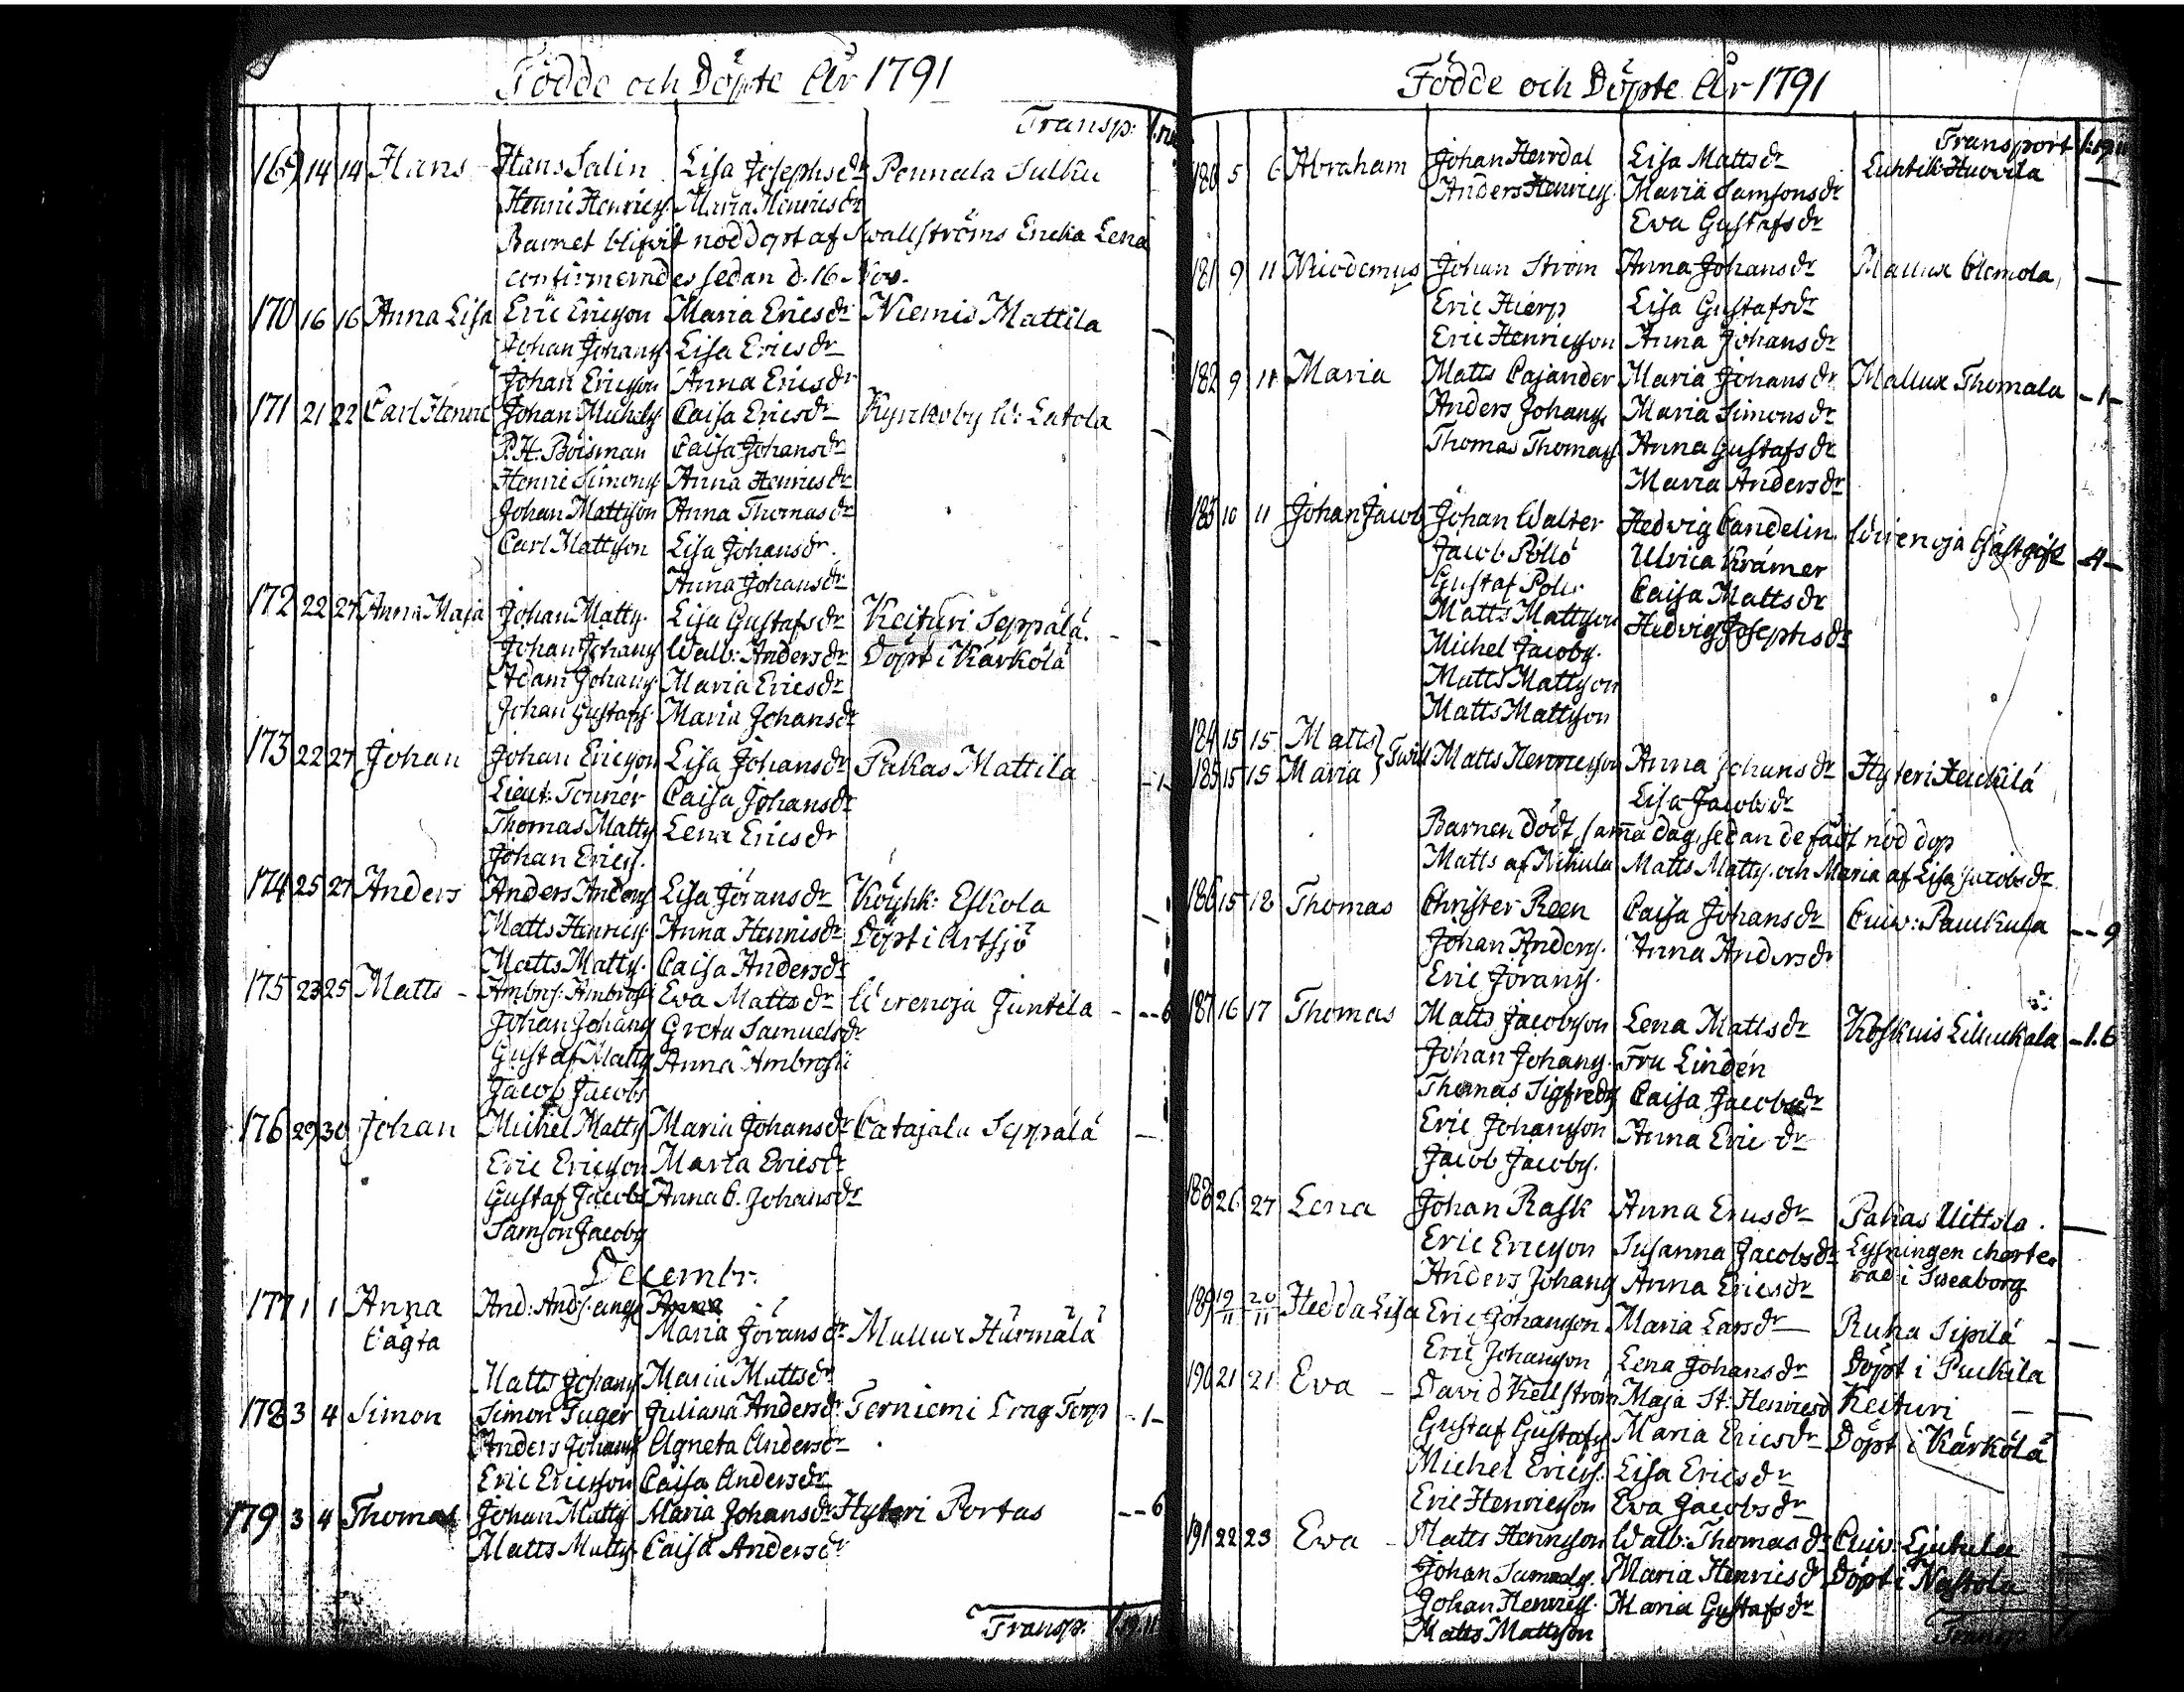 Födde och Döpte År 1791
Transp:
169 14 14 Hans Hans Salin Lisa Josephsdr Pennala Sulku
Henric Henrics. Maria Henricsdr
Barnet blifvit nöddöpt af Swallströms Enckia Lena
confirmerades sedan d. 16 Nov.
170 16 16 Anna Lisa Eric Ericsson Maria Ericsdr Niemis Mattila
Johan Johans. Lisa Ericsdr
Johan Ericsson Anna Ericsdr
171 21 22 Carl Henric Johan Michels. Caisa Ericsdr Kyrckoby W: Latola
P. H. Boisman Caisa Johansdr
Henric Simons. Anna Henricsdr
Johan Mattsson Anna Thomasdr
Carl Mattsson Lisa Johansdr.
Anna Johansdr
172 22 27 Anna Maja Johan Matts. Lisa Gustafsdr Keituri Seppälä.
Johan Johans. Walb: Andersdr Döpt i Kärkölä
Adam Johans. Maria Ericsdr
Johan Gustafs. Maria Johansdr
173 22 27 Johan Johan Ericsson Lisa Johansdr Pakas Mattila -1-
Lieut: Tonnér Caisa Johansdr
Thomas Matts. Lena Ericsdr
Johan Erics.
174 25 27 Anders Anders Anders. Lisa Jöransdr Köyhk: Eskola
Matts Henrics. Anna Henricsdr Döpt i Artsjö
Matts Matts. Caisa Andersdr
175 23 25 Matts - Ambrs: Ambrosi Eva Mattsdr Wirenoja Juntila --6
Johan Johans. Greta Samuelsdr
Gustaf Matts. Anna Ambrosii
Jacob Jacobs.
176 29 30 Johan Michel Matts. Maria Johansdr Catajala Seppälä
Eric Ericsson Maria Ericsdr
Gustaf Jacobs. Anna C. Johansdr
Samson Jacobs.
Decembr.
177 1 1 Anna And: Ands:
Oägta Maria Jöransdr Mallux Hurmälä
Matts Johans. Maria Mattsdr
178 3 4 Simon Simon Tuger Juliana Andersdr Terniemi Drag Torp -1-
Anders Johans. Agneta Andersdr
Eric Ericsson Caisa Andersdr
179 3 4 Thomas Johan Matts. Maria Johansdr Hyteri Portas --6
Matts Matts. Caisa Andersdr
Transp. 1.19.11
Födde och Döpte År 1791
Transport 1:19.11
180 5 6 Abraham Johan Herrdal Lisa Mattsdr Luhtik: Huovila
Anders Henrics. Maria Samsonsdr
Eva Gustafsdr
181 9 11 Nicodemus Johan Ström Anna Johansdr Mallux Clemola
Eric Hierp Lisa Gustafsdr
Eric Henricsson Anna Johansdr
182 9 11 Maria Matts Cajander Maria Johansdr Mallux Thomala -1-
Anders Johans. Maria Simonsdr
Thomas Thomass. Anna Gustafsdr
Maria Andersdr
183 10 11 Johan Jacob Johan Walter Hedvig Candelin Wirenoja Gästgifr -4-
Jacob Pöllö Ulrica Krämer
Gustaf Caisa Mattsdr
Matts Mattsson Hedvig Josephsdr
Michel Jacobs.
Matts Mattsson
Matts Mattsson
184 15 15 Matts
185 15 15 Maria } Twill Matts Henricsson Anna Johansdr Hyteri Heickilä
Lisa Jacobsdr
Barnen dödt samma dag, sedan de fådt nöd dop
Matts af Nikula Matts Matts. och Maria af Lisa Jacobsdr
186 15 18 Thomas Christer Reen Caisa Johansdr Cuiv: Paukkula --9
Johan Anders. Anna Andersdr
Eric Jörans.
187 16 17 Thomas Matts Jacobsson Lena Mattsdr Koskuis Liliuckala -1.6
Johan Johans. Fru Lindén
Thomas Sigfreds. Caisa Jacobsdr
Eric Johansson Anna Ericdr
Jacob Jacobs.
188 26 27 Lena Johan Rask Anna Ericsdr Pakas Uittola.
Eric Ericsson Susanna Jacobsdr Lysningen charte
Anders Johans. Anna Ericsdr rad i Sweaborg
189 19/11 20/11 Hedda Lisa Eric Johansson Maria Larsdr Ruha Sipilä
Eric Johansson Lena Johansdr Döpt i Puckila
190 21 21 Eva - David Kellström Maja St. Henricsd Keituri
Gustaf Gustafs. Maria Ericsdr Döpt i Kärkölä
Michel Erics. Lisa Ericsdr
Eric Henricsson Eva Jacobsdr
191 22 23 Eva - Matts Henricsson Walb: Thomasdr Cuiv:
Johan Maria Henricsdr Döpt i Nastola
Johan Henrics. Maria Gustafsdr
Matts Mattsson
Transp.